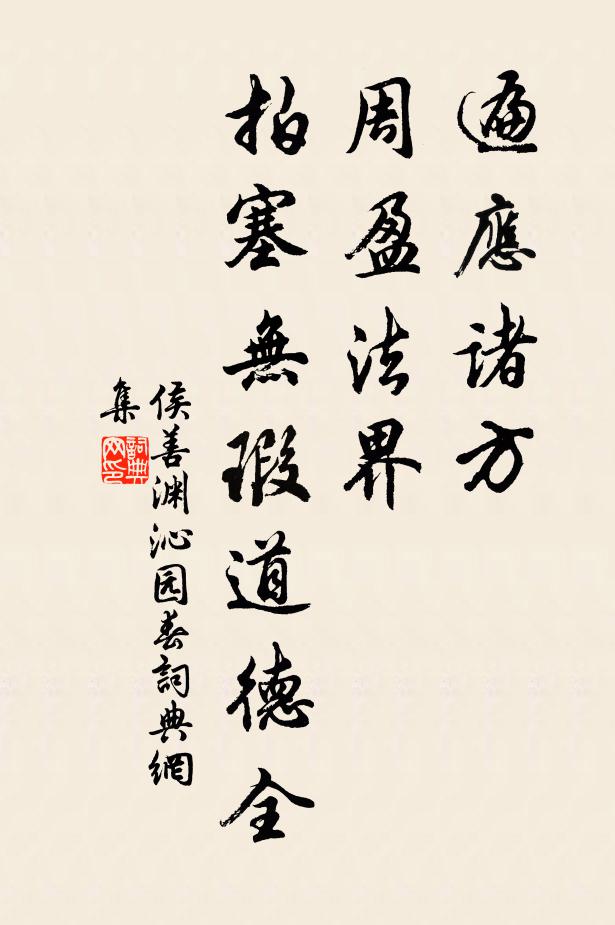 遍應諸方
周盈法界
拍塞無瑕道德全
侯善渊沁园春詞典網
集
詞典网印